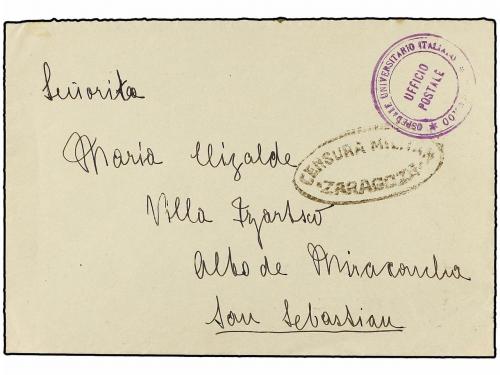 Señorita
OSPEDALE UNIVERSITARIO ITALIANO
UFFICIO
POSTALE
CENSURA MILITAR
ZARAGOZA
María Elizalde
Villa
Alto de Miraconcha
San Sebastian